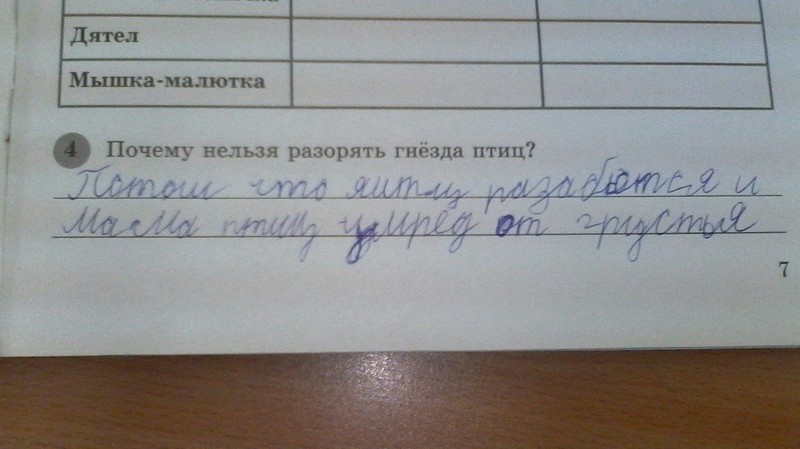 Дятел
Мышка-малютка
4 Почему нельзя разорять гнёзда птиц?
Потош что яитц разабются и
мама птиц умред от грустья
7